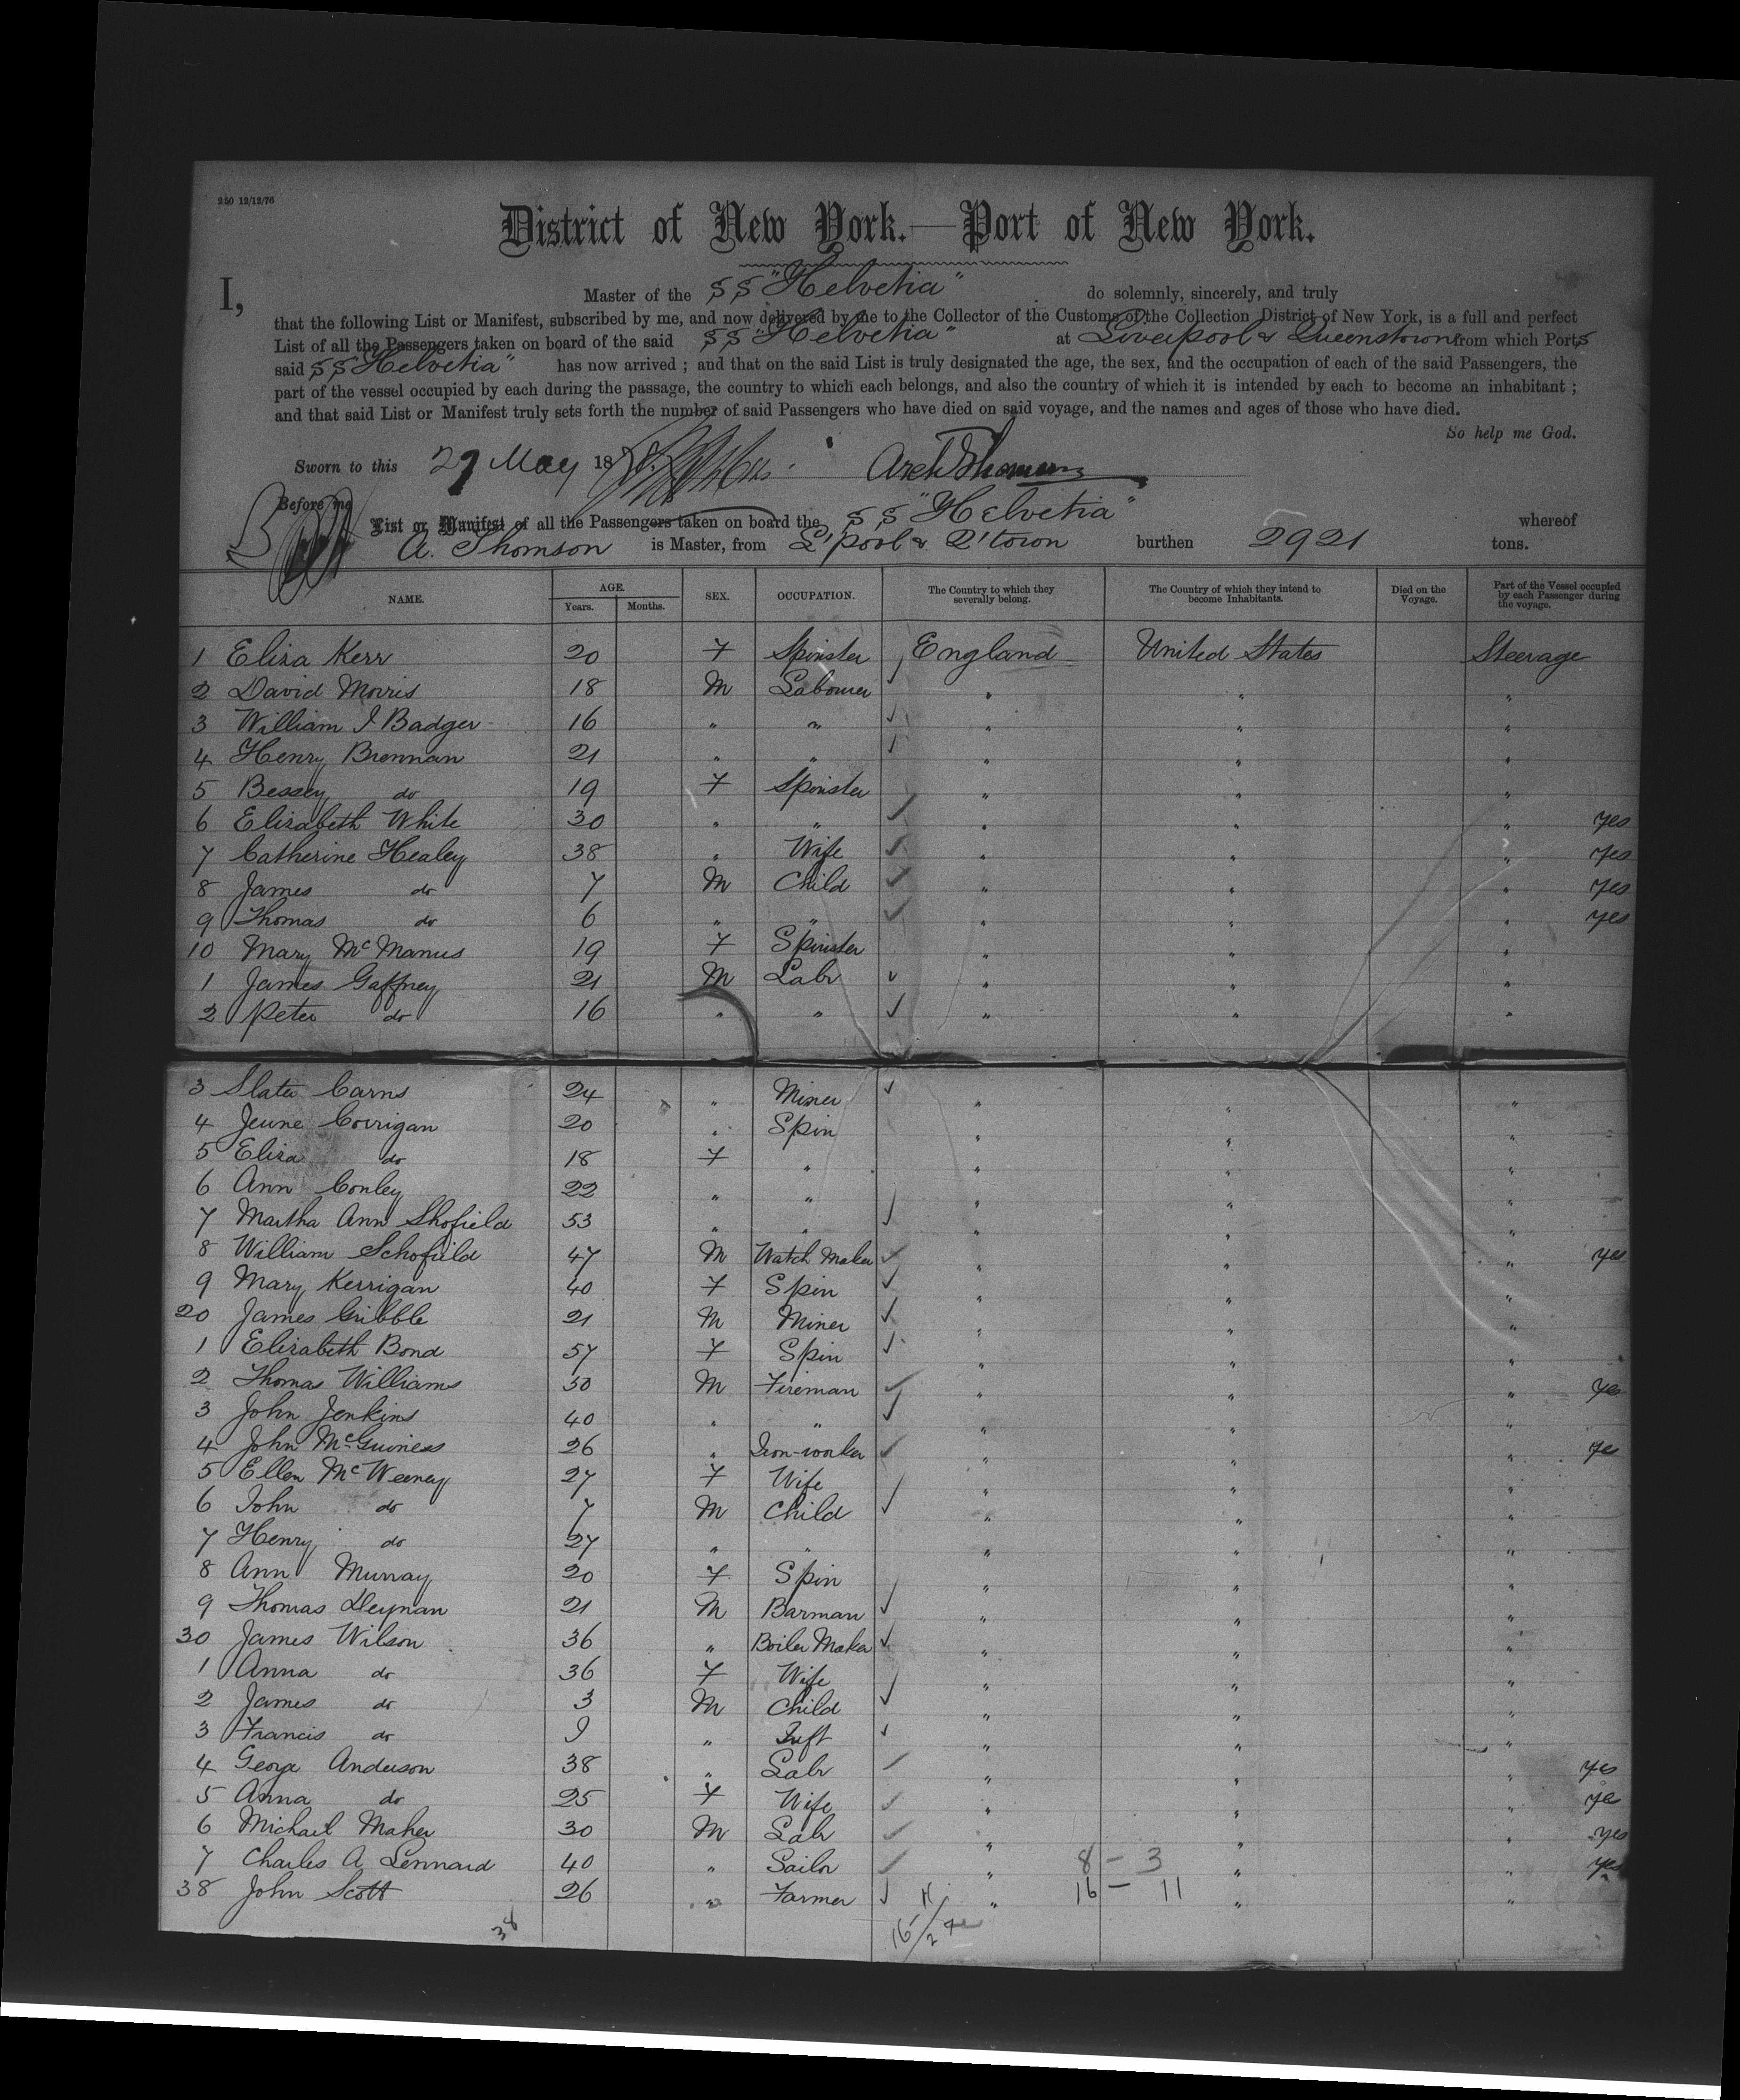 250 12/12/76
District of New York.—Port of New York.
I, Master of the SS "Helvetia" do solemnly, sincerely, and truly
that the following List or Manifest, subscribed by me, and now delivered by me to the Collector of the Customs of the Collection District of New York, is a full and perfect
List of all the Passengers taken on board of the said SS "Helvetia" at Liverpool & Queenstown from which Ports
said SS "Helvetia" has now arrived ; and that on the said List is truly designated the age, the sex, and the occupation of each of the said Passengers, the
part of the vessel occupied by each during the passage, the country to which each belongs, and also the country of which it is intended by each to become an inhabitant ;
and that said List or Manifest truly sets forth the number of said Passengers who have died on said voyage, and the names and ages of those who have died.
So help me God.
Sworn to this 27 May 18 Arch Thomson
Before me
List or Manifest of all the Passengers taken on board the SS "Helvetia" whereof
A. Thomson is Master, from L'pool & Q'town burthen 2921 tons.
NAME. AGE. Years. Months. SEX. OCCUPATION. The Country to which they severally belong. The Country of which they intend to become Inhabitants. Died on the Voyage. Part of the Vessel occupied by each Passenger during the voyage.
1 Eliza Kerr 20 F Spinster England United States Steerage
2 David Morris 18 M Labourer " " "
3 William I Badger 16 " " " " "
4 Henry Brennan 21 " " " " "
5 Bessey do 19 F Spinster " " "
6 Elizabeth White 30 " " " " " yes
7 Catherine Healey 38 " Wife " " " yes
8 James do 7 M Child " " " yes
9 Thomas do 6 " " " " " yes
10 Mary McManus 19 F Spinster " " "
1 James Gaffney 21 M Labr " " "
2 Peter do 16 " " " " "
3 Slater Carns 24 " Miner " " "
4 Jeune Corrigan 20 " Spin " " "
5 Eliza do 18 F " " " "
6 Ann Conley 22 " " " " "
7 Martha Ann Shofield 53 " " " " "
8 William Schofield 47 M Watch Maker " " " yes
9 Mary Kerrigan 40 F Spin " " "
20 James Gribble 21 M Miner " " "
1 Elizabeth Bond 57 F Spin " " "
2 Thomas Williams 30 M Fireman " " " yes
3 John Jenkins 40 " " " " "
4 John McGuiness 26 " Iron-worker " " " yes
5 Ellen McWeeney 27 F Wife " " "
6 John do 7 M Child " " "
7 Henry do 27 " " " " "
8 Ann Murray 20 F Spin " " "
9 Thomas Deynan 21 M Barman " " "
30 James Wilson 36 " Boiler Maker " " "
1 Anna do 36 F Wife " " "
2 James do 3 M Child " " "
3 Francis do 9 " Inft " " "
4 George Anderson 38 " Labr " " " yes
5 Anna do 25 F Wife " " " yes
6 Michael Maher 30 M Labr " " " yes
7 Charles A Lennard 40 " Sailor " 8 - 3 " " yes
38 John Scott 26 " Farmer " 16 - 11 " "
38